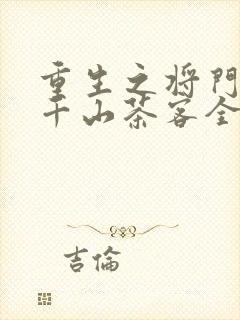 重生之将門
千山茶客全
吉倫